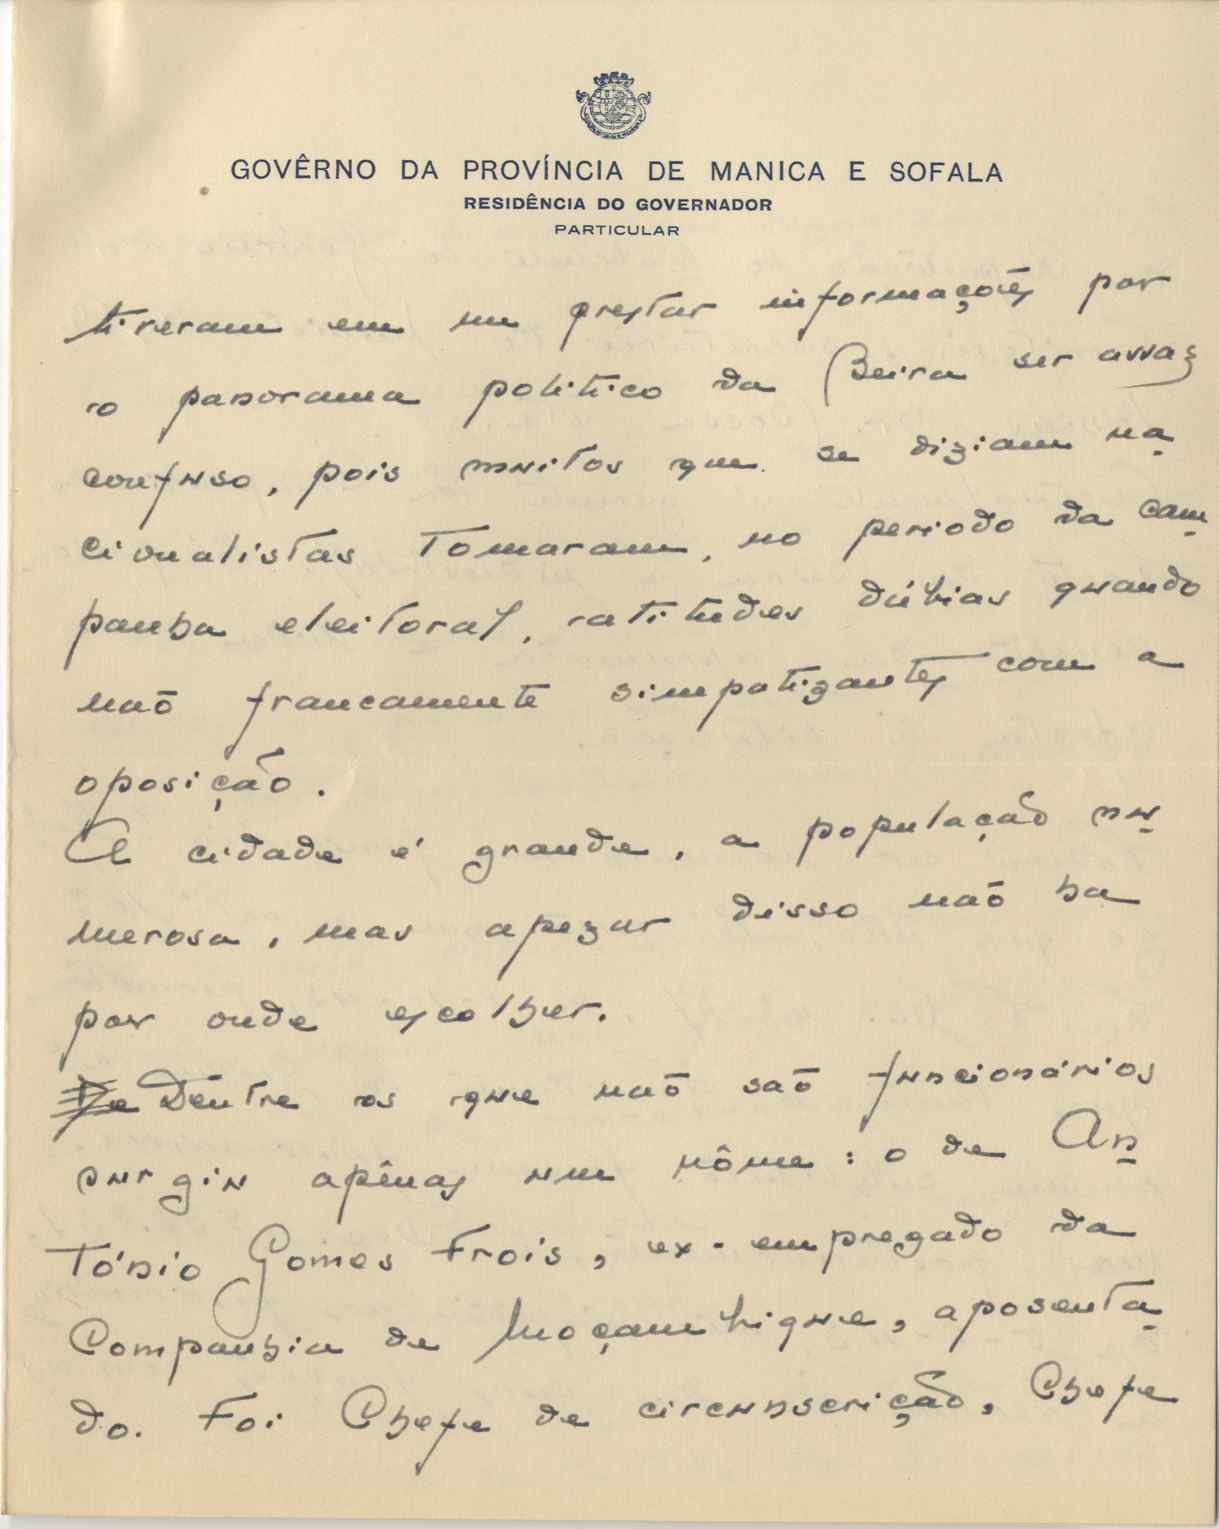 GOVÊRNO DA PROVÍNCIA DE MANICA E SOFALA
RESIDÊNCIA DO GOVERNADOR
PARTICULAR
tiveram em me prestar informações por
o panorama politico da Beira ser assaz
confuso, pois muitos que se diziam na
cionalistas tomaram, no periodo da cam
panha eleitoral, atitudes dúbias quando
não francamente simpatizantes com a
oposição.
A cidade é grande, a população nu
merosa, mas apezar disso não ha
por onde escolher.
De Dentre os que não são funcionários
surgiu apênas um nôme: o de An
tónio Gomes Frois, ex-empregado da
Companhia de Moçambique, aposenta
do. Foi Chefe de circunscrição, Chefe